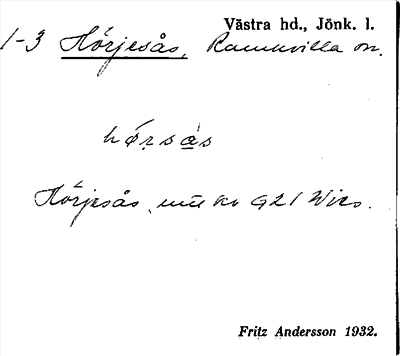 Västra hd., Jönk. l.
1-3 Hörjesås, Ramkvilla sn.
hö̀rsås
Hörjesås
Fritz Andersson 1932.